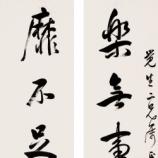 覺生二兄
樂無事
靡不足